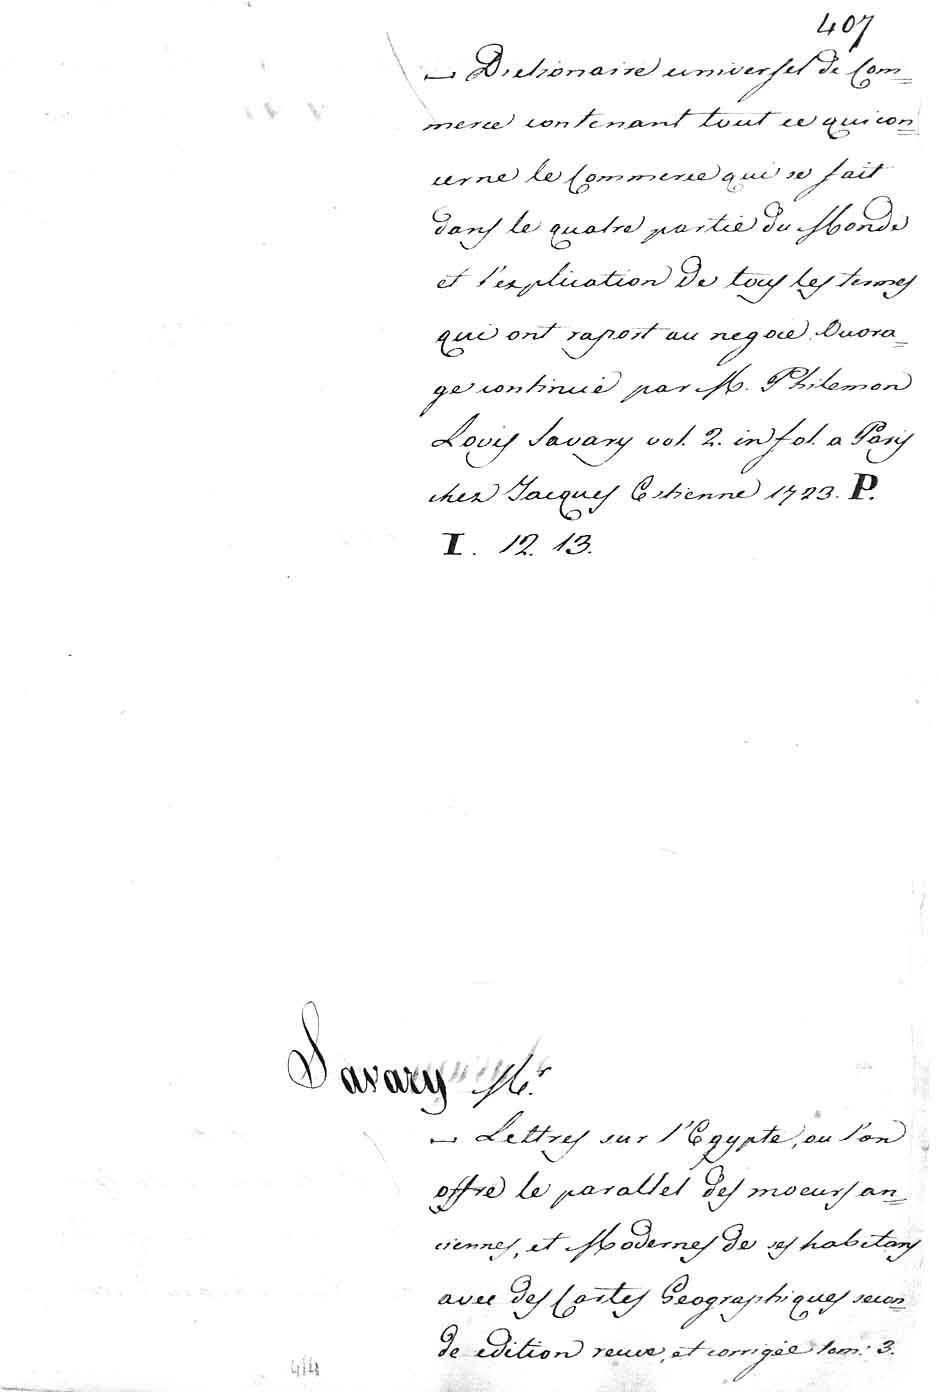 407
— Dictionaire universel de Com=
merce contenant tout ce qui con=
cerne le Commerce qui se fait
dans le quatre partie du Monde
et l'explication de tous les termes
qui ont raport au negoce. Ouvra=
ge continué par M. Philemon
Louis Savary vol. 2. in fol. a Paris
chez Jacques Estienne 1723. P.
I. 12. 13.
Savary Mr.
— Lettres sur l'Egypte, ou l'on
offre le parallel des moeurs an=
ciennes, et Modernes de ses habitans
avec des Cartes Geographiques secon=
de edition revue, et corrigée tom: 3.
414